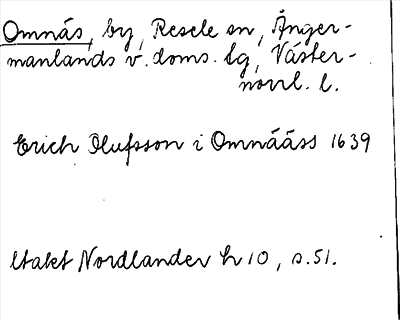 Omnäs, by, Resele sn, Ånger-
manlands v. doms. lg, Väster-
norrl. l.
Erich Olufsson i Omnääss 1639
Utakt Nordlander h 10, s. 51.